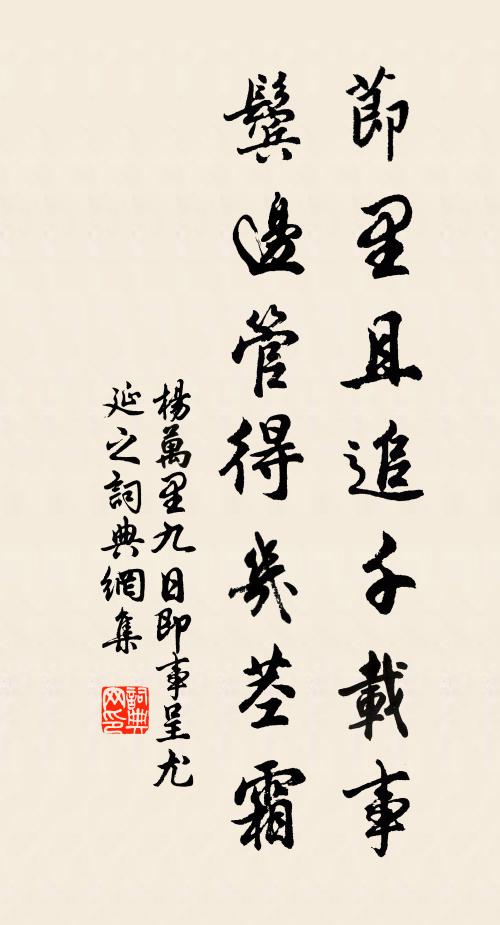 節里且追千載事
鬢邊管得幾莖霜
楊萬里九日即事呈尤
延之詞典網集
詞典網印